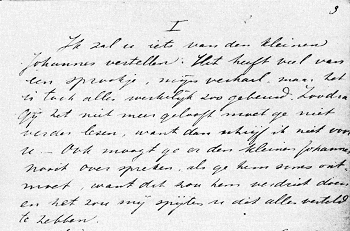 3
I
Ik zal u iets van den kleinen
Johannes vertellen. Het heeft veel van
een sprookje, mijn verhaal, maar het
is toch alles werkelijk zoo gebeurd. Zoodra
Gij het niet meer gelooft moet ge niet
verder lezen, want dan schrijf ik niet voor
u. – Ook moogt ge er den kleinen Johannes
nooit over spreken, als ge hem soms ont-
moet, want dat zou hem verdriet doen
en het zou mij spijten u dit alles verteld
te hebben.